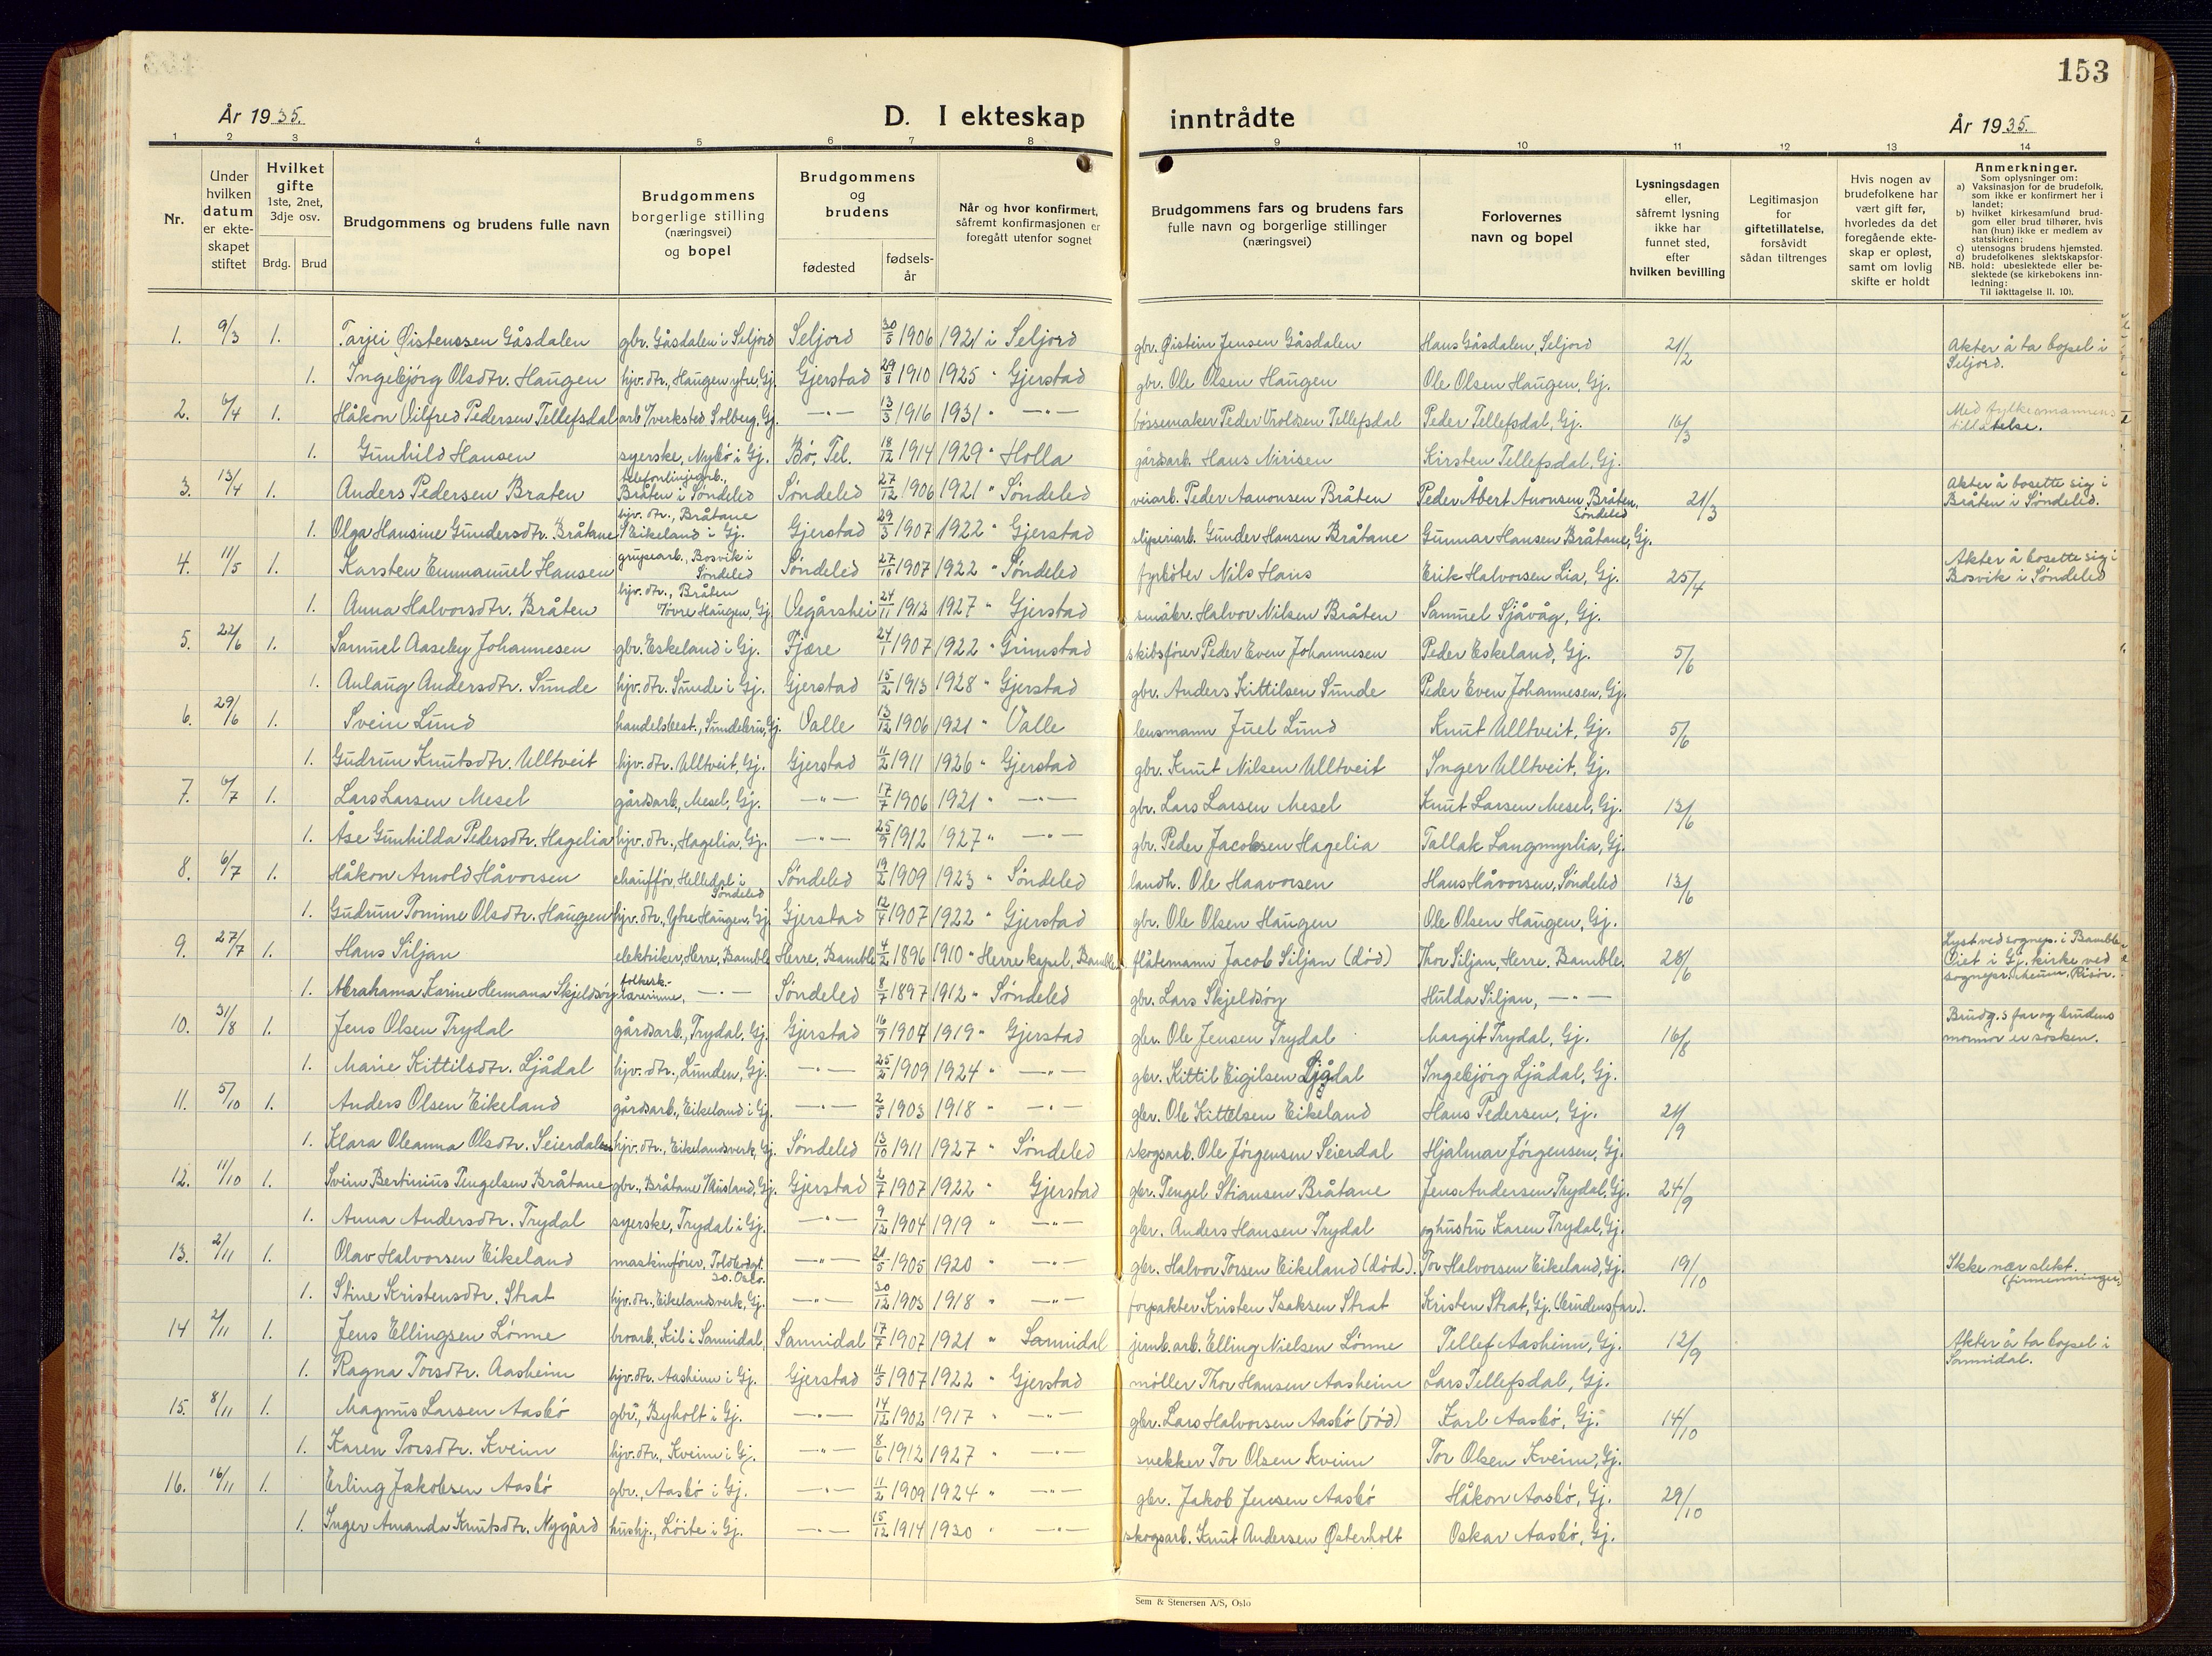 153
År 1935. D. I ekteskap inntrådte År 1935.
1 2 3 4 5 6 7 8 9 10 11 12 13 14
Nr.
Under hvilken datum er ekteskapet stiftet
Hvilket gifte 1ste, 2net, 3dje osv. Brdg. Brud
Brudgommens og brudens fulle navn
Brudgommens borgerlige stilling (næringsvei) og bopel
Brudgommens og brudens fødested fødsels-år
Når og hvor konfirmert, såfremt konfirmasjonen er foregått utenfor sognet
Brudgommens fars og brudens fars fulle navn og borgerlige stillinger (næringsvei)
Forlovernes navn og bopel
Lysningsdagen eller, såfremt lysning ikke har funnet sted, efter hvilken bevilling
Legitimasjon for giftetillatelse, forsåvidt sådan tiltrenges
Hvis nogen av brudefolkene har vært gift før, hvorledes da det foregående ekteskap er opløst, samt om lovlig skifte er holdt
Anmerkninger.
Som oplysninger om:
a) Vaksinasjon for de brudefolk, som ikke er konfirmert her i landet;
b) hvilket kirkesamfund brudgom eller brud tilhører, hvis han (hun) ikke er medlem av statskirken;
c) utensogns brudens hjemsted.
d) brudefolkenes slektskapsforhold: ubeslektede eller beslektede (se kirkebokens innledning:
NB. Til iakttagelse II. 10).
1. 9/3 1. Tarjei Øistenssen Gåsdalen gbr. Gåsdalen i Seljord Seljord 30/5 1906 1921 i Seljord gbr. Øistein Jensen Gåsdalen Hans Gåsdalen, Seljord 21/2 Akter å ta bopel i Seljord.
1. Ingebjörg Olsdtr. Haugen hjv. dtr., Haugen ytre, Gj. Gjerstad 29/8 1910 1925 " Gjerstad gbr. Ole Olsen Haugen Ole Olsen Haugen, Gj.
2. 6/4 1. Håkon Vilfred Pedersen Tellefsdal arb v/verksted Solberg, Gj. —"— 13/3 1916 1931 " —"— bössemaker Peder Tellefsdal Peder Tellefsdal, Gj. 16/3 Med fylkesmannens tillatelse.
1. Gunhild Hansen syerske, Nybö i Gj. Bö, Tel. 18/12 1914 1929 " Holla gårdsarb. Hans Nirisen Kirsten Tellefsdal, Gj.
3. 13/4 1. Anders Pedersen Braten telefonlinjearb., Bråten i Söndeled Söndeled 27/12 1906 1921 " Söndeled veiarb. Peder Aanonsen Bråten Peder Åbert Ånonsen Bråten, Söndeled 21/3 Akter å bosette sig i Bråten i Söndeled.
1. Olga Hansine Gundersdtr. Bråtane hjv. dtr., Bråtane /Eikeland i Gj. Gjerstad 29/3 1907 1922 " Gjerstad sliperiarb. Gunder Hansen Bråtane Gunnar Hansen Bråtane, Gj.
4. 11/5 1. Karsten Emmanuel Hansen grupearb., Bosvik i Söndeled Söndeled 27/10 1907 1922 " Söndeled fyrböter Nils Hans Erik Halvorsen Lia, Gj. 25/4 Akter å bosette sig i Bosvik i Söndeled
1. Anna Halvorsdtr. Bråten hjv. dtr., Bråten /övre Haugen, Gj. Vegårshei 24/11 1912 1927 " Gjerstad småbr. Halvor Nilsen Bråten Samuel Sjåvåg, Gj.
5. 22/6 1. Samuel Aaseby Johannesen gbr. Eskeland i Gj. Fjære 24/1 1907 1922 " Grimstad skibsförer Peder Even Johannesen Peder Eskeland, Gj. 5/6
1. Anlaug Andersdtr. Sunde hjv. dtr. Sunde i Gj. Gjerstad 15/2 1913 1928 " Gjerstad gbr. Anders Kittilsen Sunde Peder Even Johannesen, Gj.
6. 29/6 1. Svein Lund handelsbest., Sundebru, Gj. Valle 13/12 1906 1921 " Valle lensmann Juel Lund Knut Ulltveit, Gj. 5/6
1. Gudrun Knutsdtr. Ulltveit hjv. dtr. Ulltveit, Gj. Gjerstad 11/2 1911 1926 " Gjerstad gbr. Knut Nilsen Ulltveit Inger Ulltveit, Gj.
7. 6/7 1. Lars Larsen Mesel gårdsarb., Mesel, Gj. —"— 17/7 1906 1921 " —"— gbr. Lars Larsen Mesel Knut Larsen Mesel, Gj. 13/6
1. Åse Gunhilda Pedersdtr. Hagelia hjv. dtr., Hagelia, Gj. —"— 25/9 1912 1927 " —"— gbr. Peder Jacobsen Hagelia Tallak Langmyrlia, Gj.
8. 6/7 1. Håkon Arnold Håvorsen chaufför, Helledal i Söndeled Söndeled 19/2 1909 1923 " Söndeled landh. Ole Haavorsen Hans Håvorsen, Söndeled 13/6
1. Gudrun Tomine Olsdtr. Haugen hjv. dtr., Ytre Haugen, Gj. Gjerstad 12/4 1907 1922 " Gjerstad gbr. Ole Olsen Haugen Ole Olsen Haugen, Gj.
9. 27/7 1. Hans Siljan elektriker, Herre, Bamble Herre, Bamble 4/2 1896 1910 " Herre kapel, Bamble flåtemann Jacob Siljan (död) Thor Siljan, Herre. Bamble. 28/6 Lyst ved sognepr. i Bamble Viet i Gj. kirke ved sognepr. Risör.
1. Abrahama Karine Hermana Skjeldsöy folkesk.-lærerinne, —"— Söndeled 8/7 1897 1912 " Söndeled gbr. Lars Skjeldsöy Hulda Siljan, —"—
10. 31/8 1. Jens Olsen Trydal gårdsarb., Trydal, Gj. Gjerstad 16/9 1904 1919 " Gjerstad gbr. Ole Jensen Trydal Margit Trydal, Gj. 16/8 Brudg.s far og brudens mormor er sösken.
1. Marie Kittilsdtr. Ljådal hjv. dtr., Lunden, Gj. —"— 25/2 1909 1924 " —"— gbr. Kittil Eigilsen Ljådal Ingebjörg Ljådal, Gj.
11. 5/10 1. Anders Olsen Eikeland gårdsarb., Eikeland i Gj. —"— 2/5 1903 1918 " —"— gbr. Ole Kittelsen Eikeland Hans Pedersen, Gj. 21/9
1. Klara Oleanna Olsdtr. Seierdalen hjv. dtr., Eikelandsverk, Gj. Söndeled 13/10 1911 1927 " Söndeled skogsarb. Ole Jörgensen Seierdal Hjalmar Jörgensen, Gj.
12. 11/10 1. Svein Bertinius Tengelsen Bråtane gbr., Bråtane /Ausland, Gj. Gjerstad 2/7 1907 1922 " Gjerstad gbr. Tengel Stiansen Bråtane Jens Andersen Trydal, Gj. 24/9
1. Anna Andersdtr. Trydal syerske, Trydal i Gj. —"— 9/12 1904 1919 " —"— gbr. Anders Hansen Trydal og hustru Karen Trydal, Gj.
13. 2/11 1. Olav Halvorsen Eikeland maskinförer, Toldbodgt. 20. Oslo. —"— 21/5 1905 1920 " —"— gbr. Halvor Torsen Eikeland (död). Tor Halvorsen Eikeland, Gj. 19/10 Ikke nær slekt. (firmenninger)
1. Stine Kristensdtr. Strat hjv. dtr., Eikelandsverk, Gj. —"— 30/12 1903 1918 " —"— forpakter Kristen Isaksen Strat Kristen Strat, Gj. (brudens far).
14 2/11 1. Jens Ellingsen Lönne broarb. Kil i Sannidal, Sannidal 17/7 1907 1921 " Sannidal jernb.arb. Elling Nielsen Lönne Tellef Aasheim, Gj. 12/9 Akter å ta bopel i Sannidal.
1. Ragna Torsdtr. Aasheim hjv. dtr. Aasheim i Gj. Gjerstad 11/5 1907 1922 " Gjerstad möller Thor Hansen Aasheim Lars Tellefsdal, Gj.
15. 8/11 1. Magnus Larsen Aasbö gbr., Byholt i Gj. —"— 14/12 1902 1917 " —"— gbr. Lars Halvorsen Aasbö (död) Karl Aasbö, Gj. 14/10
1. Karen Torsdtr. Kveim hjv. dtr., Kveim i Gj. —"— 8/6 1912 1927 " —"— snekker Tor Olsen Kveim Tor Olsen Kveim, Gj.
16. 16/11 1. Erling Jakobsen Aasbö gbr., Aasbö i Gj. —"— 11/2 1909 1924 " —"— gbr. Jakob Jensen Aasbö Håkon Aasbö, Gj. 29/10
1. Inger Amanda Knutsdtr. Nygård hushj., Löite i Gj. —"— 15/12 1914 1930 " —"— skogsarb. Knut Andersen Østerholt Oskar Aasbö, Gj.
Sem & Stenersen A/S, Oslo